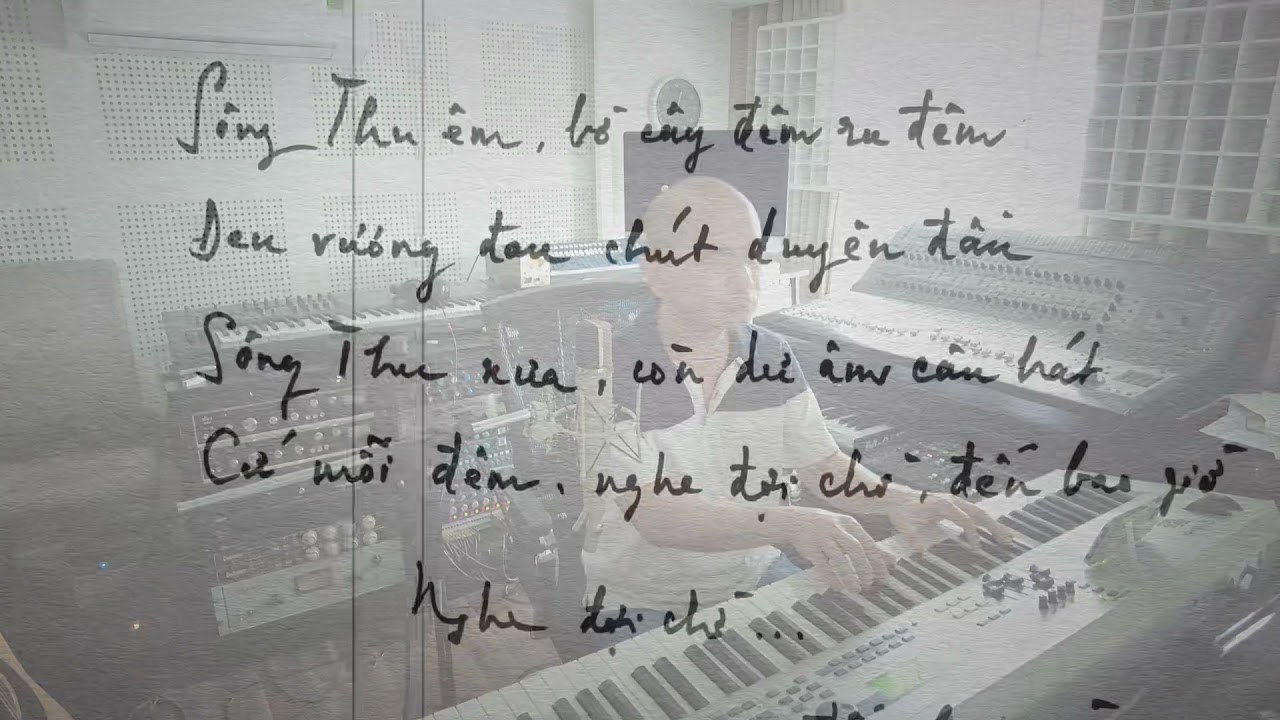 Sông Thu êm, bờ cây đêm ru đêm
vướng đau chút duyên đầu
Sông Thu xưa, còn dư âm câu hát
Cứ mỗi đêm, nghe đợi chờ, đến bao giờ
Nghe đợi chờ...